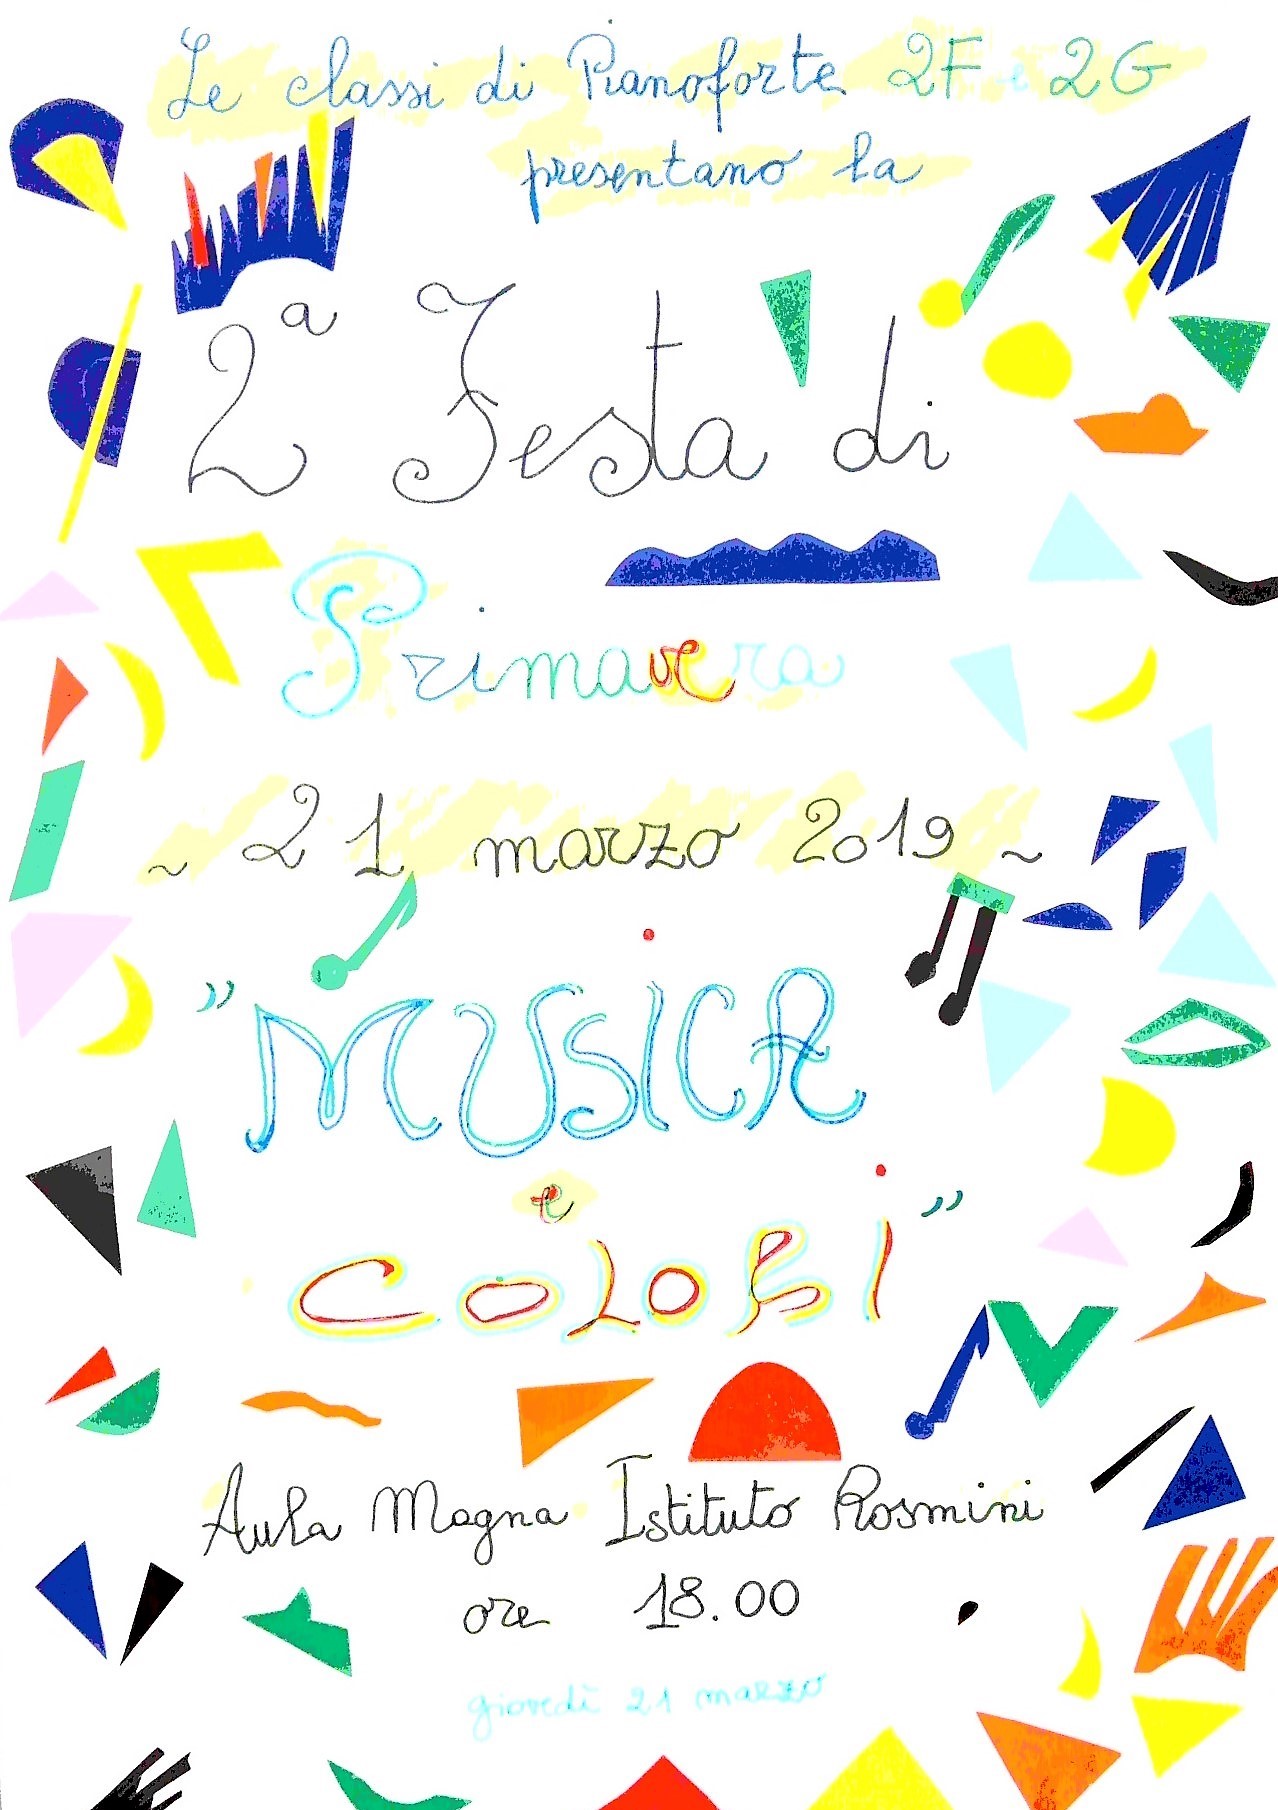 Le classi di Pianoforte 2F e 2G
presentano la
2ª Festa di
Primavera
~ 21 marzo 2019 ~
"MUSICA
e
COLORI"
Aula Magna Istituto Rosmini
ore 18.00
giovedì 21 marzo